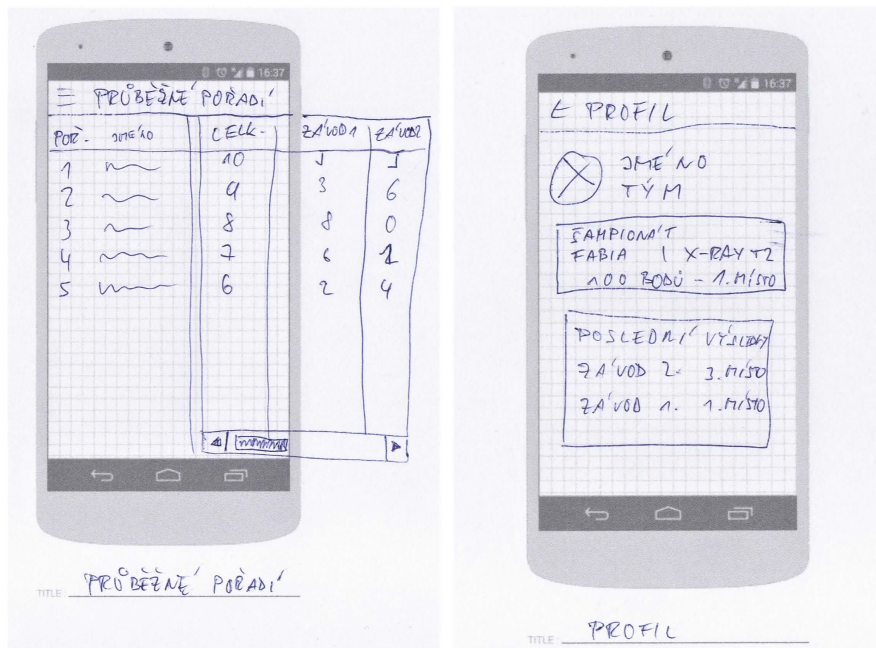 16:37
PRŮBĚŽNÉ POŘADÍ
POŘ. JMÉNO CELK. ZÁVOD1 ZÁVOD2
1 10 5 5
2 9 3 6
3 8 8 0
4 7 6 1
5 6 2 4
TITLE PRŮBĚŽNÉ POŘADÍ
16:37
PROFIL
JMÉNO
TÝM
ŠAMPIONÁT
FABIA | X-RAY T2
100 BODŮ - 1. MÍSTO
POSLEDNÍ VÝSLEDKY
ZÁVOD 2. 3. MÍSTO
ZÁVOD 1. 1. MÍSTO
TITLE: PROFIL